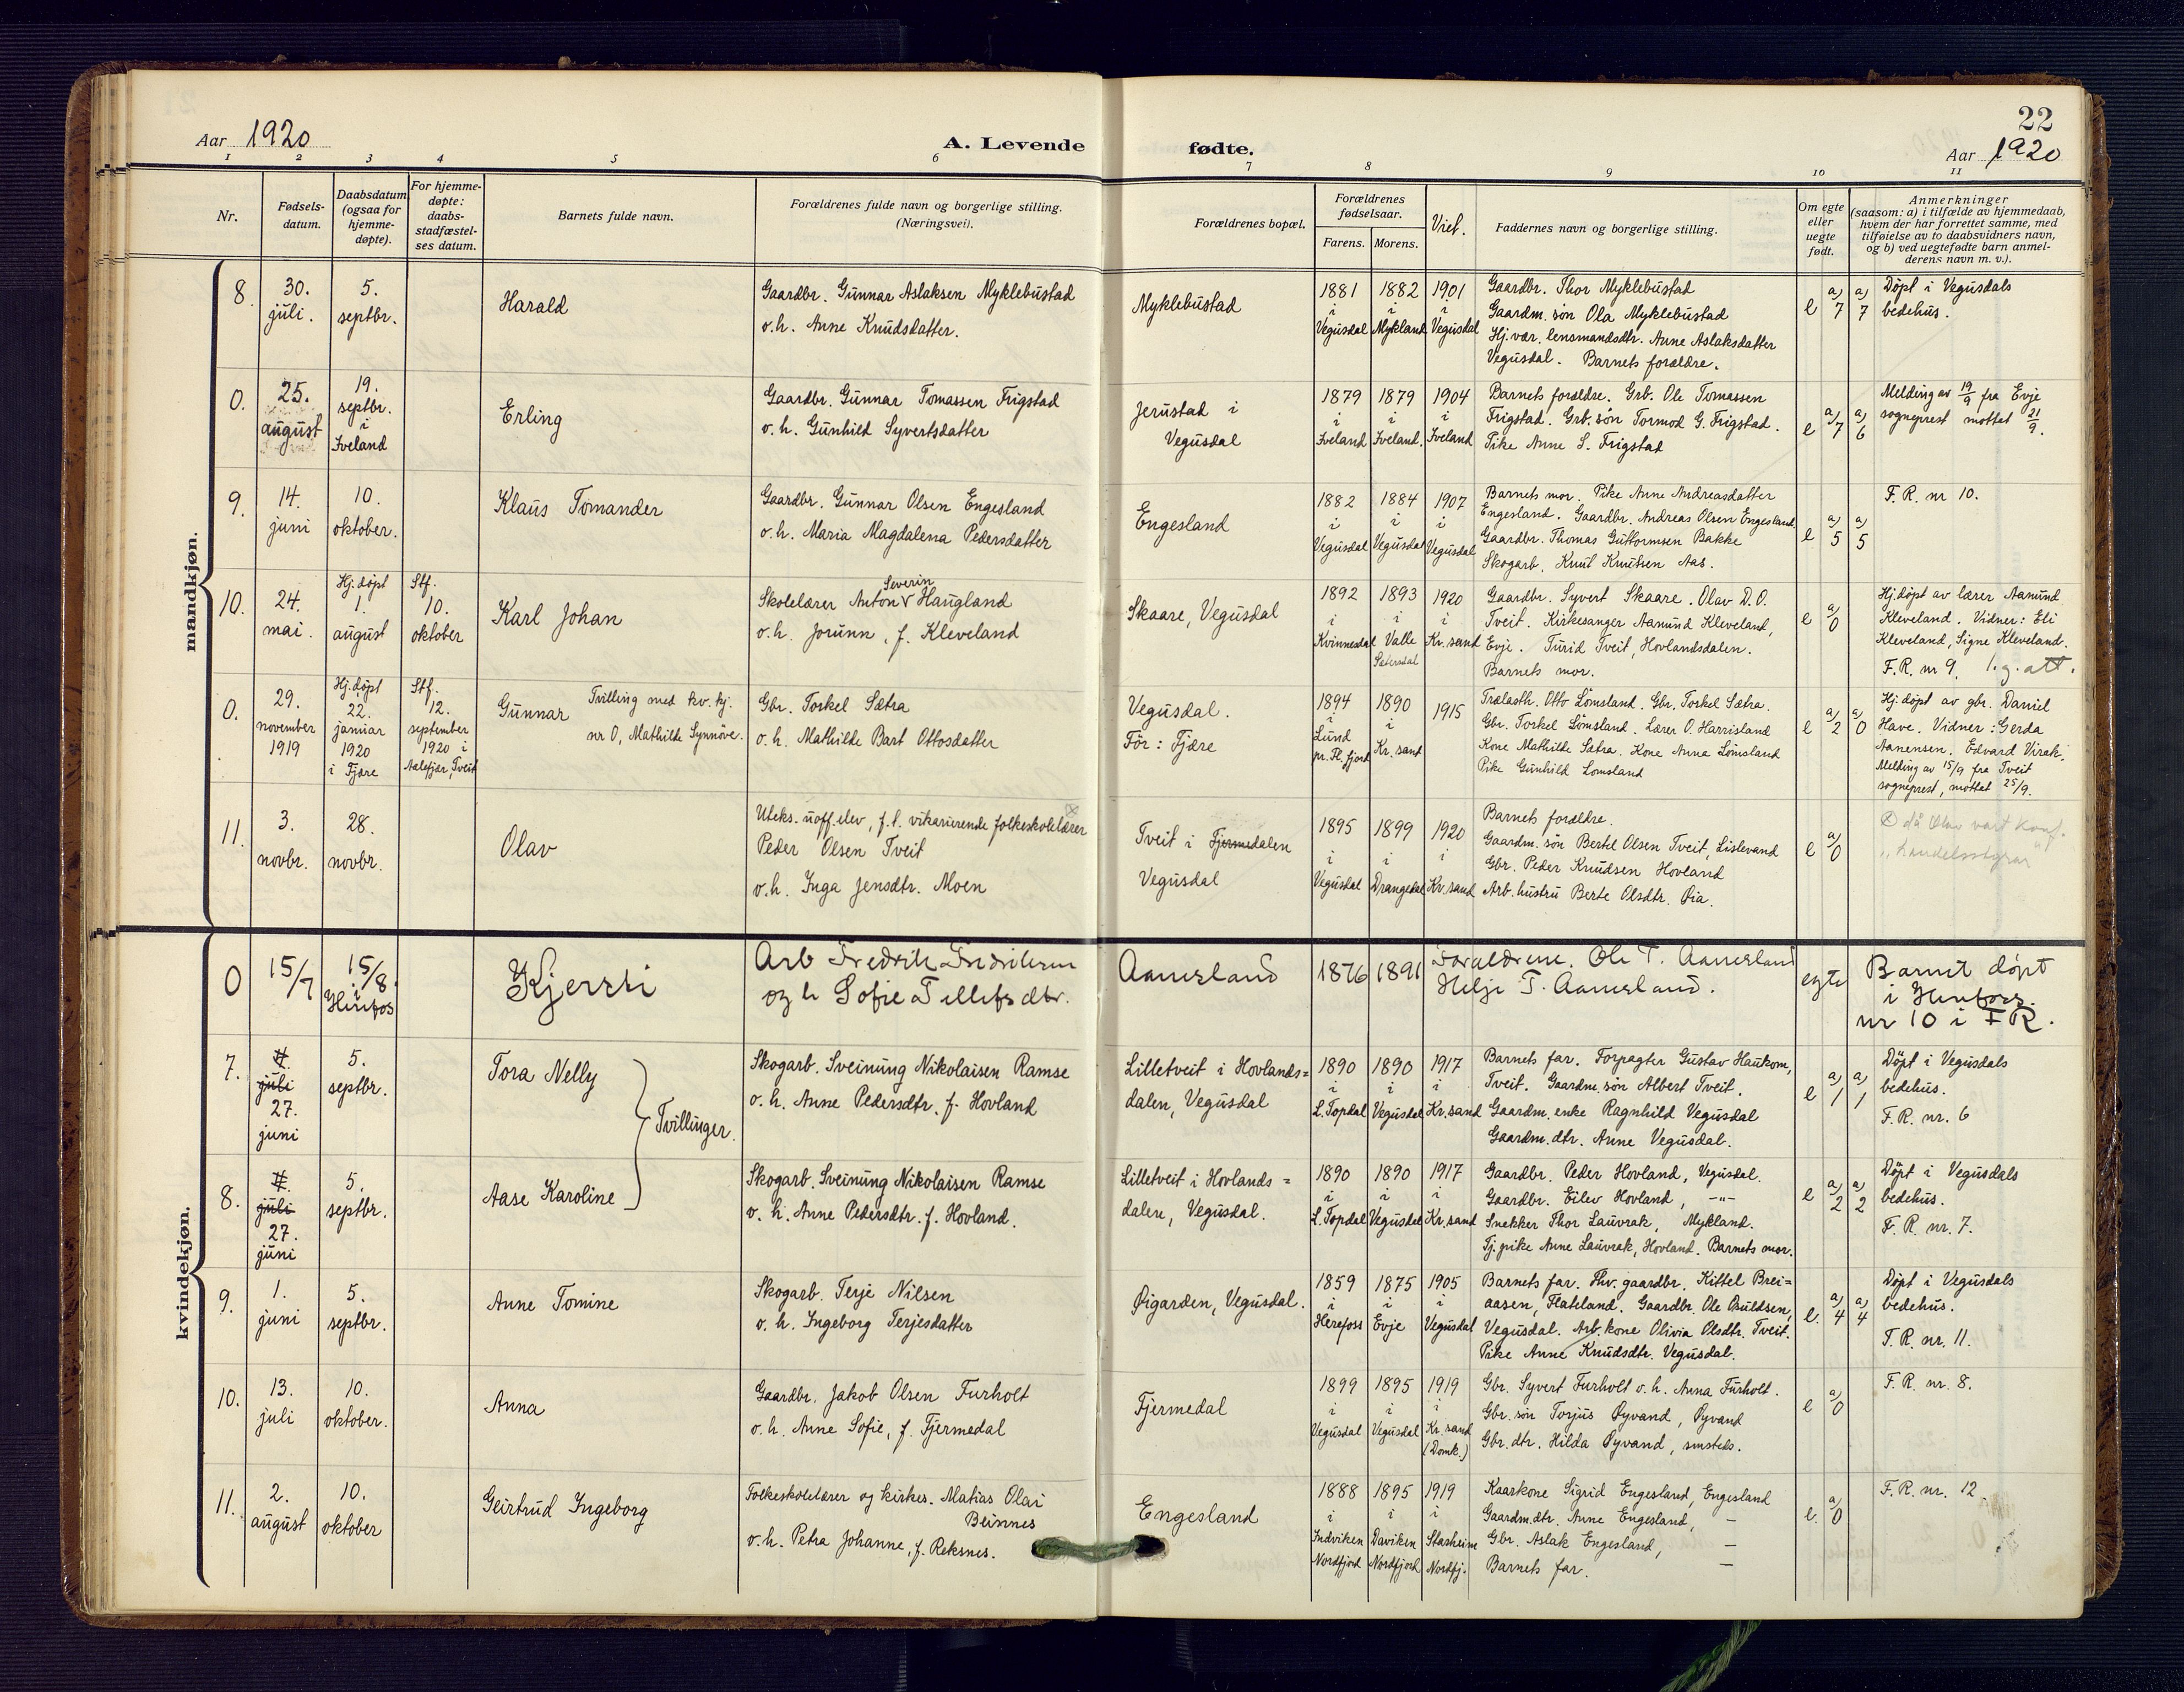 22
Aar 1920
A. Levende fødte.
Aar 1920
1 2 3 4 5 6 7 8 9 10 11
Nr.
Fødsels-
datum.
Daabsdatum
(ogsaa for
hjemme-
døpte).
For hjemme-
døpte:
daabs-
stadfæstel-
ses datum.
Barnets fulde navn.
Forældrenes fulde navn og borgerlige stilling.
(Næringsvei).
Forældrenes bopæl.
Forældrenes
fødselsaar.
Farens. Morens.
Viet.
Faddernes navn og borgerlige stilling.
Om egte
eller
uegte
født.
Anmerkninger
(saasom: a) i tilfælde av hjemmedaab,
hvem der har forrettet samme, med
tilføielse av to daabsvidners navn,
og b) ved uegtefødte barn anmel-
derens navn m. v.).
mandkjøn.
8.
30.
juli.
5.
septbr.
Harald
Gaardbr. Gunnar Aslaksen Myklebustad
o.h. Anne Knudsdatter.
Myklebustad
1881
i
Vegusdal
1882
i
Mykland
1901
i
Vegusdal
Gaardbr. Thor Myklebustad
Gaardm. søn Ola Myklebustad
Hj.vær. lensmandsdtr. Anne Aslaksdatter
Vegusdal. Barnets forældre.
e a) 7 a) 7
Døpt i Vegusdals
bedehus.
0.
25.
august
19.
septbr.
i
Iveland
Erling
Gaardbr. Gunnar Tomassen Frigstad
o.h. Gunhild Syvertsdatter
Jerustad i
Vegusdal
1879
i
Iveland
1879
i
Iveland.
1904
i
Iveland
Barnets forældre. Grb. Ole Tomassen
Frigstad. Grb. søn Tormod G. Frigstad.
Pike Anne S. Frigstad
e a) 7 a) 6
Melding av 19/9 fra Evje
sogneprest mottat 21/9.
9.
14.
juni
10.
oktober.
Klaus Tomander
Gaardbr. Gunnar Olsen Engesland
o.h. Maria Magdalena Pedersdatter
Engesland
1882
i
Vegusdal
1884
i
Vegusdal
1907
i
Vegusdal
Barnets mor. Pike Anne Andreasdatter
Engesland. Gaardbr. Andreas Olsen Engesland.
Gaardbr. Thomas Guttormsen Bakke
Skogarb. Knut Knutsen Aas.
e a) 5 a) 5
F.R. nr 10.
10.
24.
mai.
Hj.døpt
1.
august
Stf.
10.
oktober
Karl Johan
Severin
Skolelærer Anton v Haugland
o.h. Jorunn, f. Kleveland
Skaare, Vegusdal
1892
i
Kvinnesdal
1893
i
Valle
Setersdal
1920
i
Kr.sand
Gaardbr. Syvert Skaare. Olav D.O.
Tveit. Kirkesanger Aamund Kleveland,
Evje. Turid Tveit, Hovlandsdalen.
Barnets mor.
e a) 0
Hj.døpt av lærer Aamund
Kleveland. Vidner: Eli
Kleveland, Signe Kleveland.
F.R. nr 9. l.g. att.
0.
29.
november
1919
Hj.døpt
22.
januar
1920
i Fjære
Stf.
12.
september
1920 i
Aalefjær, Tveit
Gunnar
Tvilling med kv. kj.
nr 0, Mathilde Synnøve.
Gbr. Torkel Sætra
o.h. Mathilde Bart Ottosdatter
Vegusdal.
Før: Fjære
1894
i
Lund
pr. Fl. fjord
1890
i
Kr. sand
1915
Trælasth. Otto Lømsland. Gbr. Torkel Sætra.
Gbr. Torkel Lømsland. Lærer O. Harrisland
Kone Mathilde Sætra. Kone Anna Lømsland
Pike Gunhild Lomsland
e a) 2 a) 0
Hj.døpt av gbr. Daniel
Have. Vidner: Gerda
Aanensen, Edvard Virak.
Melding av 15/9 fra Tveit
sogneprest, mottat 25/9.
11.
3.
novbr.
28.
novbr.
Olav
Uteks. uoff. elev, f.t. vikarierende folkeskolelærer
Peder Olsen Tveit
o.h. Inga Jensdtr. Moen
Tveit i Fjermedalen
Vegusdal
1895
i
Vegusdal
1899
i
Drangedal
1920
i
Kr.sand
Barnets forældre.
Gaardm. søn Bertel Olsen Tveit, Lislevand
Gbr. Peder Knudsen Hovland
Arb. hustru Berte Olsdtr. Øia.
e a) 0
då Olav vart konf.
"handelsstyrar"
kvindekjøn.
0
15/7
15/8.
i
Herefos
Kjersti
Arb Fredrik Fredriksen
og h Sofie Tellefsdtr.
Aanesland
1876
1891
Forældrene. Ole T. Aanesland
Helje T. Aanesland.
egte
Barnet døpt
i Herefoss.
nr 10 i F R.
7.
juli
27.
juni
5.
septbr.
Tora Nelly
Tvillinger.
Skogarb. Sveinung Nikolaisen Ramse
o.h. Anne Pedersdtr. f. Hovland
Lilletveit i Hovlands=
dalen, Vegusdal
1890
i
L. Topdal
1890
i
Vegusdal
1917
i
Kr.sand
Barnets far. Forpagter Gustav Haukom,
Tveit. Gaardm. søn Albert Tveit.
Gaardm. enke Ragnhild Vegusdal
Gaardm. dtr. Anne Vegusdal.
e a) 1 a) 1
Døpt i Vegusdals
bedehus.
F.R. nr. 6
8.
juli
27.
juni
5.
septbr.
Aase Karoline
Skogarb. Sveinung Nikolaisen Ramse
o.h. Anne Pedersdtr. f. Hovland.
Lilletveit i Hovlands=
dalen, Vegusdal.
1890
i
L. Topdal
1890
i
Vegusdal
1917
i
Kr.sand
Gaardbr. Peder Hovland, Vegusdal.
Gaardbr. Eilev Hovland, -"-
Snekker Thor Lauvrak, Mykland.
Tj.pike Anne Lauvrak, Hovland. Barnets mor.
e a) 2 a) 2
Døpt i Vegusdals
bedehus.
F.R. nr. 7.
9.
1.
juni
5.
septbr.
Anne Tomine
Skogarb. Terje Nilsen
o.h. Ingeborg Terjesdatter
Øigarden, Vegusdal.
1859
i
Herefoss
1875
i
Evje
1905
i
Vegusdal
Barnets far. Fhv. gaardbr. Kittel Brei=
aasen, Flateland. Gaardbr. Ole Osuldsen,
Vegusdal. Arb. kone Olivia Olsdtr. Tveit.
Pike Anne Knudsdtr. Vegusdal.
e. a) 4 a) 4
Døpt i Vegusdals
bedehus.
F.R. nr. 11.
10.
13.
juli
10.
oktober.
Anna
Gaardbr. Jakob Olsen Furholt
o.h. Anne Sofie, f. Fjermedal
Fjermedal
1899
i
Vegusdal
1895
i
Vegusdal
1919
i
Kr. sand
(Domk.)
Gbr. Syvert Furholt o.h. Anna Furholt.
Gbr. søn Torjus Øyvand, Øyvand
Gbr. dtr. Hilda Øyvand, smsteds.
e a) 0
F.R. nr. 8.
11.
2.
august
10.
oktober
Geirtrud Ingeborg
Folkeskolelærer og kirkes. Matias Olai
Beinnes
o.h. Petra Johanne, f. Reksnes.
Engesland
1888
i
Indviken
Nordfjord
1895
i
Daviken
Nordfjord
1919
i
Starheim
Nordfj.
Kaarkone Sigrid Engesland, Engesland
Gaardm.dtr. Anne Engesland, —
Gbr. Aslak Engesland, —
Barnets far. —
e. a) 0
F.R. nr. 12